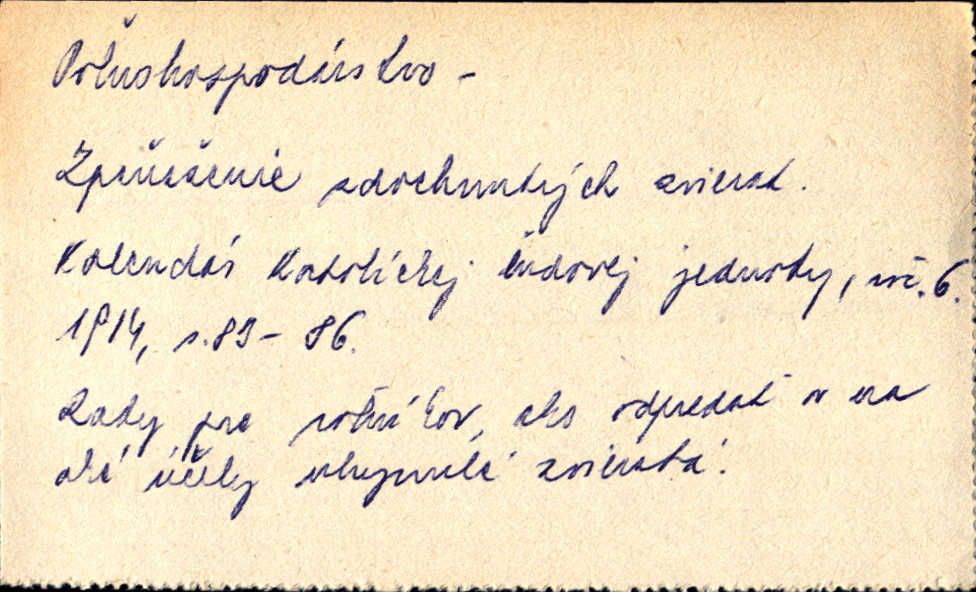 Poľnohospodárstvo -
Zpeňaženie zdochnutých zvierat.
Kalendár Katolíckej ľudovej jednoty, roč. 6.
1914, s. 83 - 86.
Rady pre roľníkov, ako odpredať a na
aké účely uhynulé zvieratá.